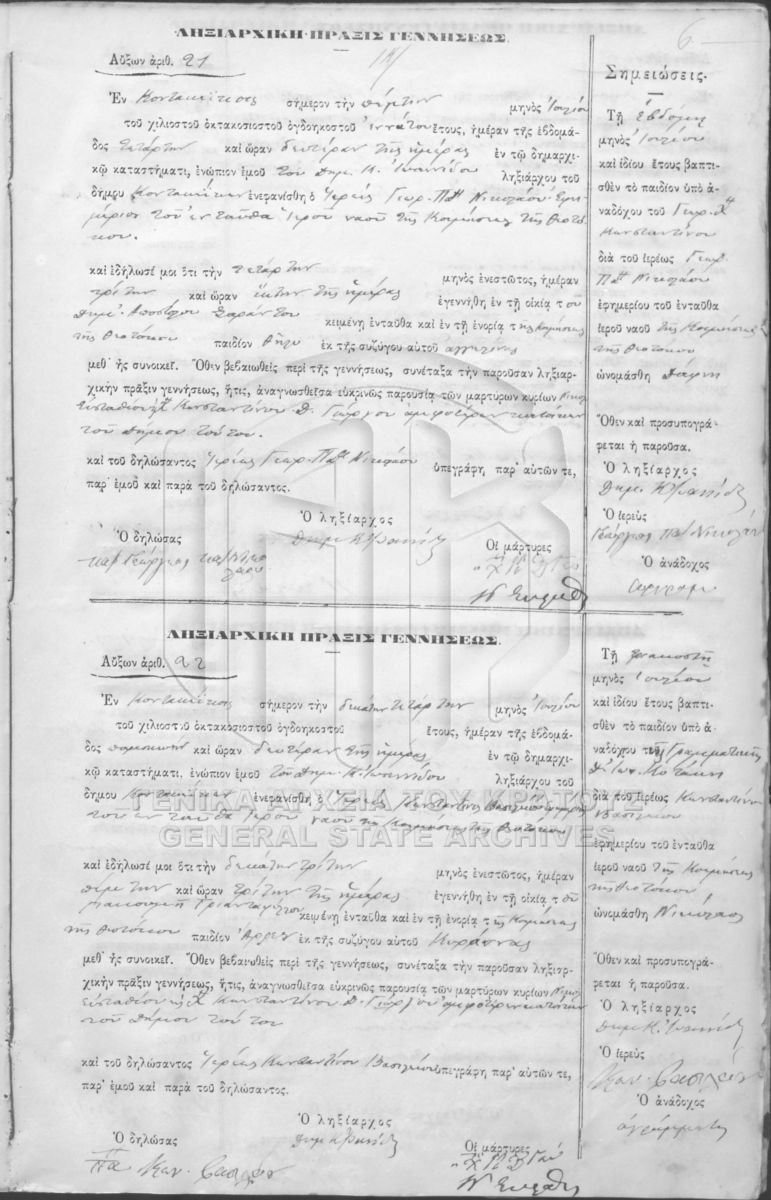 6
ΛΗΞΙΑΡΧΙΚΗ ΠΡΑΞΙΣ ΓΕΝΝΗΣΕΩΣ.
Αὔξων ἀριθ. 21
Ἐν σήμερον τὴν πέμπτην μηνὸς Ἰουλίου
τοῦ χιλιοστοῦ ὀκτακοσιοστοῦ ὀγδοηκοστοῦ ἐννάτου ἔτους, ἡμέραν τῆς ἑβδομά-
δος Τετάρτην καὶ ὥραν δευτέραν τῆς ἡμέρας ἐν τῷ δημαρχι-
κῷ καταστήματι, ἐνώπιον ἐμοῦ τοῦ Δημ. Κ. Ἰωαννίδου ληξιάρχου τοῦ
δήμου ἐνεφανίσθη ὁ Ἱερεὺς Γεωρ. Πα Νικολάου Ἐφη-
μέριος τοῦ ἐνταῦθα Ἱεροῦ ναοῦ τῆς Κοιμήσεως τῆς Θεοτό-
κου.
καὶ ἐδήλωσέ μοι ὅτι τὴν τετάρτην μηνὸς ἐνεστῶτος, ἡμέραν
τρίτην καὶ ὥραν ἕκτην τῆς ἡμέρας ἐγεννήθη ἐν τῇ οἰκίᾳ τοῦ
Δημ. Ἀποστόλου κειμένῃ ἐνταῦθα καὶ ἐν τῇ ἐνορίᾳ τῆς Κοιμήσεως
τῆς Θεοτόκου παιδίον θῆλυ ἐκ τῆς συζύγου αὐτοῦ
μεθ' ἧς συνοικεῖ. Ὅθεν βεβαιωθεὶς περὶ τῆς γεννήσεως, συνέταξα τὴν παροῦσαν ληξιαρ-
χικὴν πρᾶξιν γεννήσεως, ἥτις, ἀναγνωσθεῖσα εὐκρινῶς παρουσίᾳ τῶν μαρτύρων κυρίων
Εὐσταθίου Κωνσταντίνου Δ. Γεώργου ἀμφοτέρων κατοίκων
τοῦ Δήμου τούτου.
καὶ τοῦ δηλώσαντος Ἱερέως Γεωρ. Πα Νικολάου ὑπεγράφη παρ' αὐτῶν τε,
παρ' ἐμοῦ καὶ παρὰ τοῦ δηλώσαντος.
Ὁ ληξίαρχος
Ὁ δηλώσας
Οἱ μάρτυρες
Σημειώσεις.
Τῇ ἑβδόμῃ
μηνὸς Ἰουλίου
καὶ ἰδίου ἔτους βαπτι-
σθὲν τὸ παιδίον ὑπὸ ἀ-
ναδόχου τοῦ Γεωρ.
Κωνσταντίνου
διὰ τοῦ ἱερέως Γεωρ.
Πα Νικολάου
ἐφημερίου τοῦ ἐνταῦθα
ἱεροῦ ναοῦ τῆς Κοιμήσεως
τῆς Θεοτόκου
ὠνομάσθη Δάφνη
Ὅθεν καὶ προσυπογρά-
φεται ἡ παροῦσα.
Ὁ ληξίαρχος
Ὁ ἱερεὺς
Γεώργιος Πα Νικολάου
Ὁ ἀνάδοχος
ΛΗΞΙΑΡΧΙΚΗ ΠΡΑΞΙΣ ΓΕΝΝΗΣΕΩΣ.
Αὔξων ἀριθ. 22
Ἐν σήμερον τὴν δεκάτην τετάρτην μηνὸς Ἰουλίου
τοῦ χιλιοστοῦ ὀκτακοσιοστοῦ ὀγδοηκοστοῦ ἔτους, ἡμέραν τῆς ἑβδομά-
δος καὶ ὥραν δευτέραν τῆς ἡμέρας ἐν τῷ δημαρχι-
κῷ καταστήματι, ἐνώπιον ἐμοῦ τοῦ Δημ. Κ. Ἰωαννίδου ληξιάρχου τοῦ
δήμου ἐνεφανίσθη ὁ Ἱερεὺς Κωνσταντῖνος Βασιλείου
τοῦ ἐνταῦθα Ἱεροῦ ναοῦ τῆς Κοιμήσεως τῆς Θεοτόκου
καὶ ἐδήλωσέ μοι ὅτι τὴν δεκάτην τρίτην μηνὸς ἐνεστῶτος, ἡμέραν
πέμπτην καὶ ὥραν τρίτην τῆς ἡμέρας ἐγεννήθη ἐν τῇ οἰκίᾳ τοῦ
Τριανταφύλλου κειμένῃ ἐνταῦθα καὶ ἐν τῇ ἐνορίᾳ τῆς Κοιμήσεως
τῆς Θεοτόκου παιδίον ἄρρεν ἐκ τῆς συζύγου αὐτοῦ Κυράννας
μεθ' ἧς συνοικεῖ. Ὅθεν βεβαιωθεὶς περὶ τῆς γεννήσεως, συνέταξα τὴν παροῦσαν ληξιαρ-
χικὴν πρᾶξιν γεννήσεως, ἥτις, ἀναγνωσθεῖσα εὐκρινῶς παρουσίᾳ τῶν μαρτύρων κυρίων
Εὐσταθίου Κωνσταντίνου Δ. Γεώργου ἀμφοτέρων κατοίκων
τοῦ Δήμου τούτου
καὶ τοῦ δηλώσαντος Ἱερέως Κωνσταντίνου Βασιλείου ὑπεγράφη παρ' αὐτῶν τε,
παρ' ἐμοῦ καὶ παρὰ τοῦ δηλώσαντος.
Ὁ ληξίαρχος
Ὁ δηλώσας
Οἱ μάρτυρες
Τῇ
μηνὸς Ἰουλίου
καὶ ἰδίου ἔτους βαπτι-
σθὲν τὸ παιδίον ὑπὸ ἀ-
ναδόχου
διὰ τοῦ ἱερέως Κωνσταντίνου
Βασιλείου
ἐφημερίου τοῦ ἐνταῦθα
ἱεροῦ ναοῦ τῆς Κοιμήσεως
τῆς Θεοτόκου
ὠνομάσθη Νικόλαος
Ὅθεν καὶ προσυπογρά-
φεται ἡ παροῦσα.
Ὁ ληξίαρχος
Ὁ ἱερεὺς
Ὁ ἀνάδοχος
ΓΕΝΙΚΑ ΑΡΧΕΙΑ ΤΟΥ ΚΡΑΤΟΥΣ
GENERAL STATE ARCHIVES